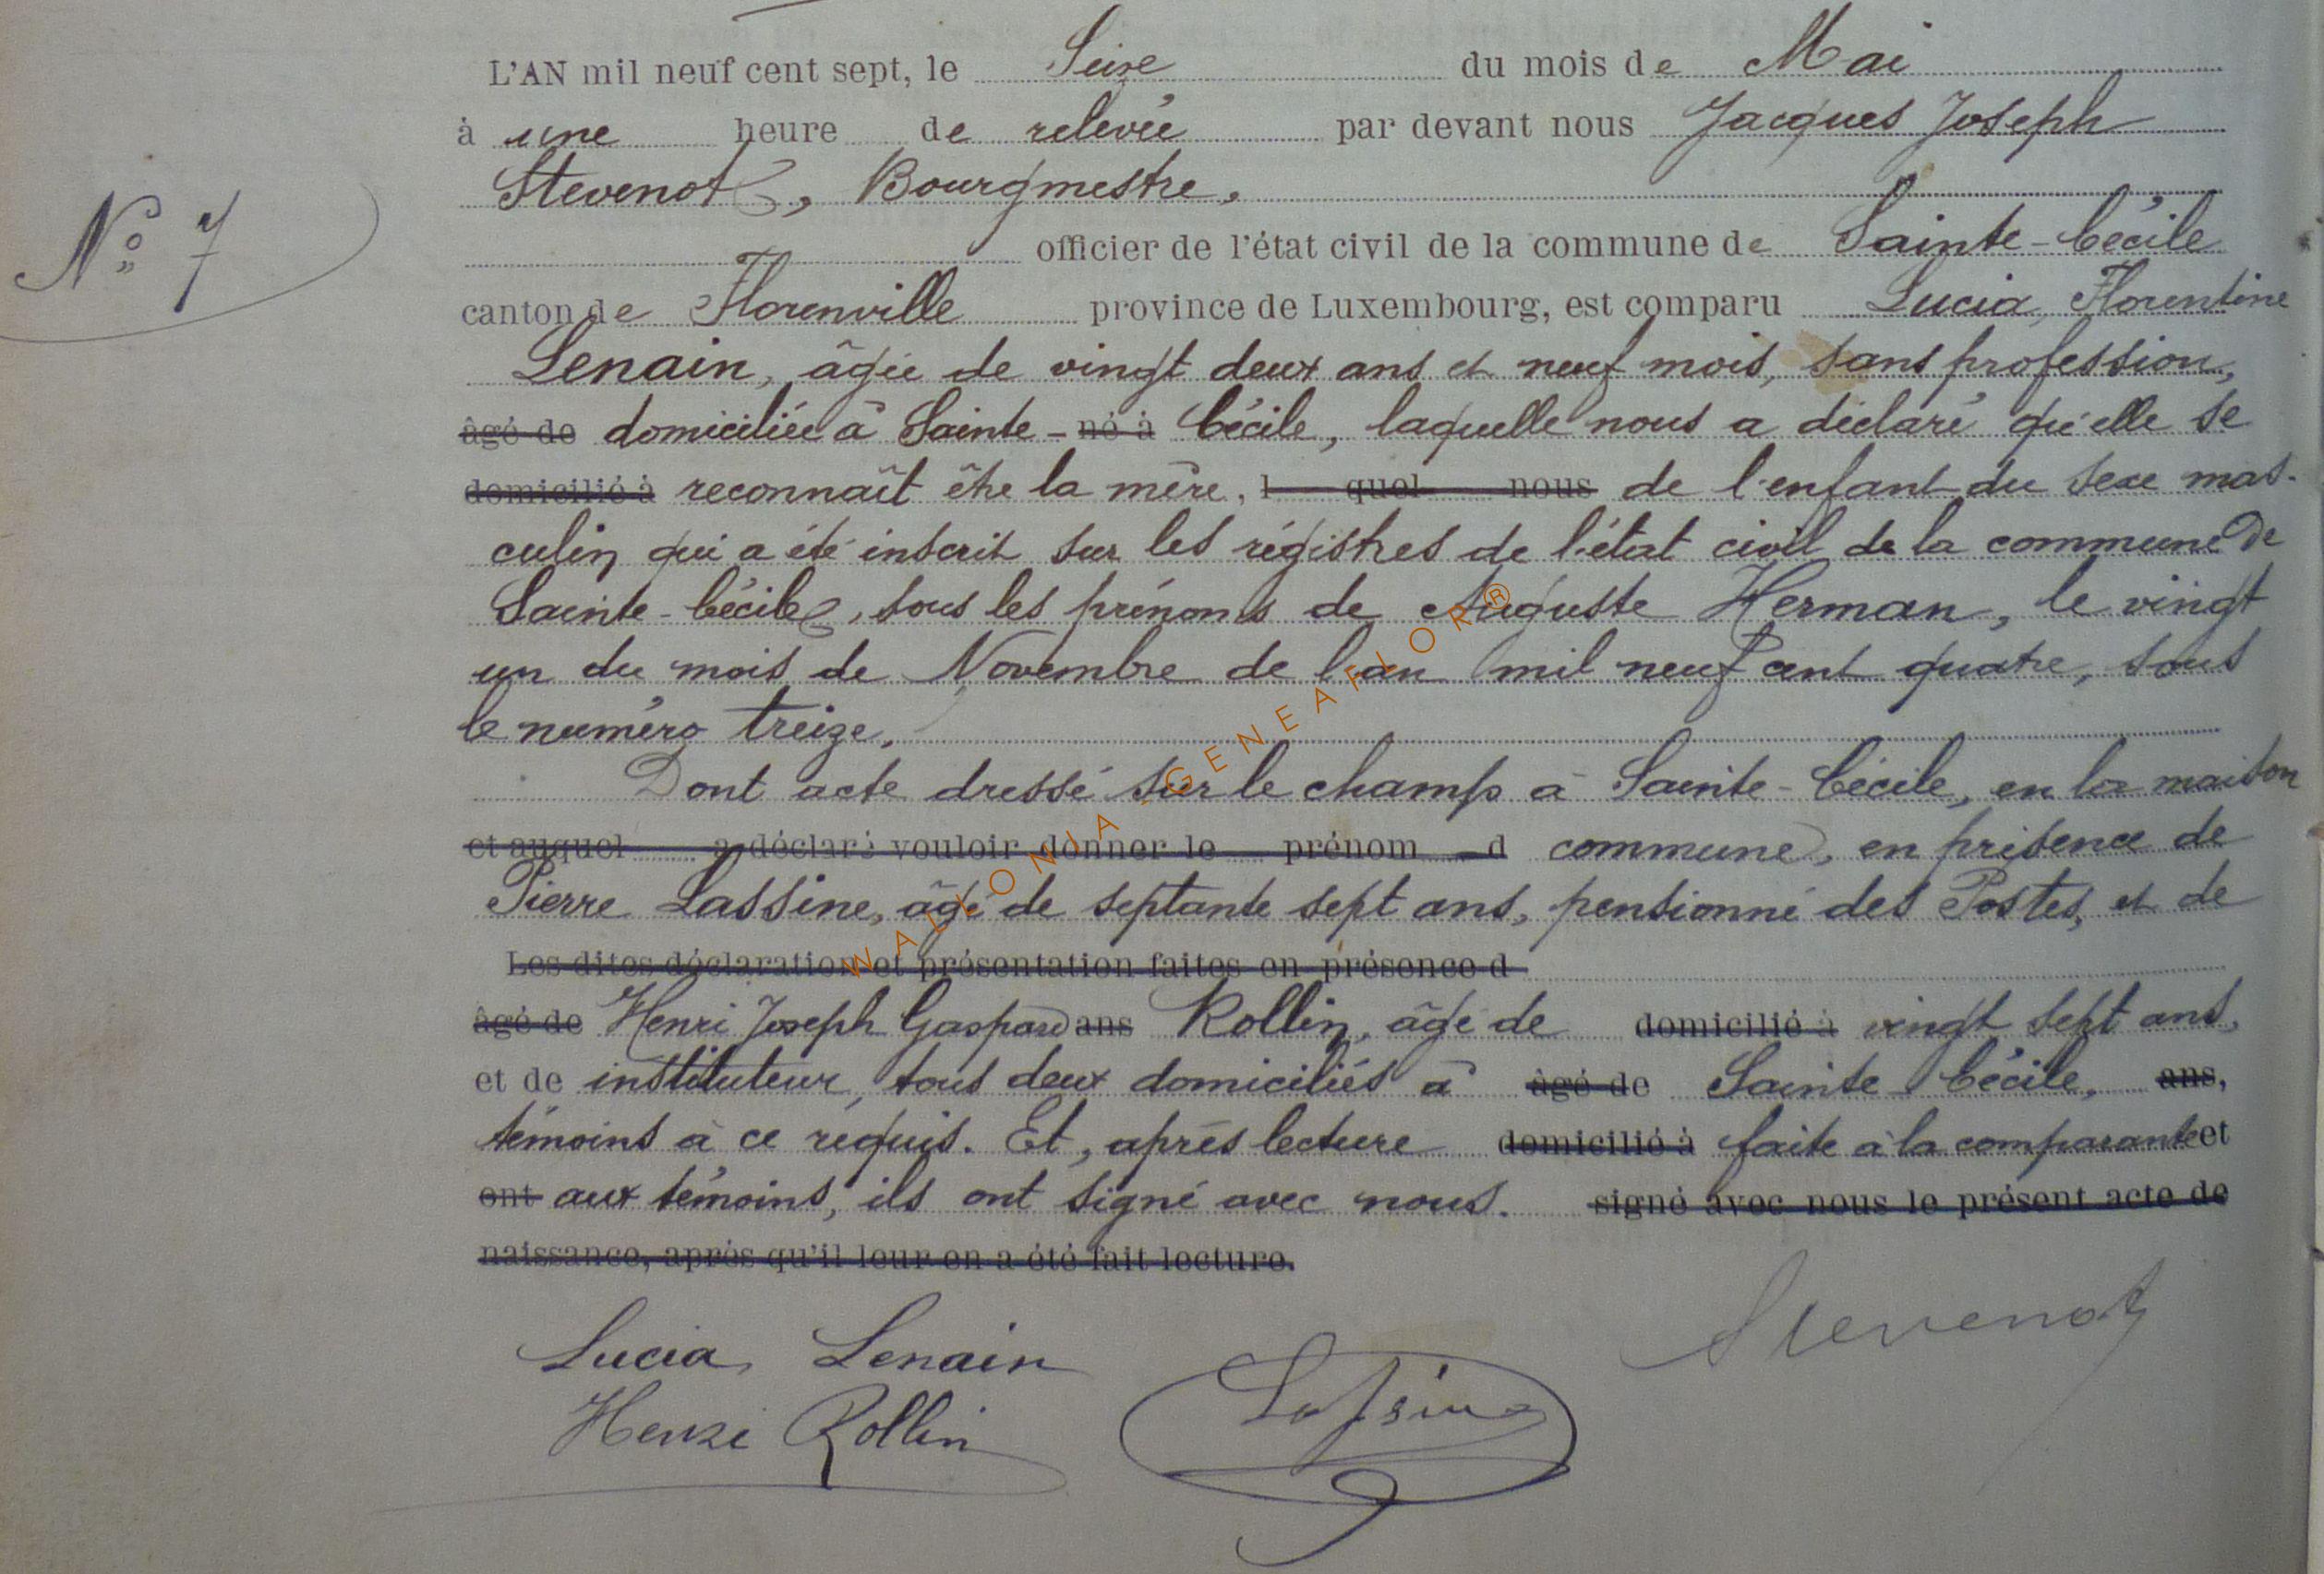 L'AN mil neuf cent sept, le Seize du mois de Mai
à une heure de relevée par devant nous Jacques Joseph
Stevenot, Bourgmestre,
N° 7
officier de l'état civil de la commune de Sainte-Cécile
canton de Florenville province de Luxembourg, est comparu Lucia, Florentine
Lenain, âgée de vingt deux ans et neuf mois, sans profession,
âgé de domiciliée à Sainte- né à Cécile, laquelle nous a déclaré qu'elle se
domicilié à reconnaît être la mère, l quel nous de l'enfant du sexe mas-
culin qui a été inscrit sur les régistres de l'état civil de la commune de
Sainte-Cécile, sous les prénoms de Auguste Herman, le vingt
un du mois de Novembre de l'an mil neuf cent quatre, sous
le numéro treize.
Dont acte dressé sur le champ à Sainte-Cécile, en la maison
et auquel a déclaré vouloir donner le prénom d commune, en présence de
Pierre Lassine, âgé de septante sept ans, pensionné des Postes, et de
Les dites déclaration et présentation faites en présence d
âgé de Henri Joseph Gaspard ans Rollin, âgé de domicilié à vingt sept ans,
et de instituteur, tous deux domiciliés à âgé de Sainte-Cécile, ans,
témoins à ce réquis. Et, après lecture domicilié à faite à la comparante et
ont aux témoins, ils ont signé avec nous. signé avec nous le présent acte de
naissance, après qu'il leur en a été fait lecture.
Stevenot
Lucia Lenain
Lassine
Henri Rollin
WALLONIA-GENEAFLOR®